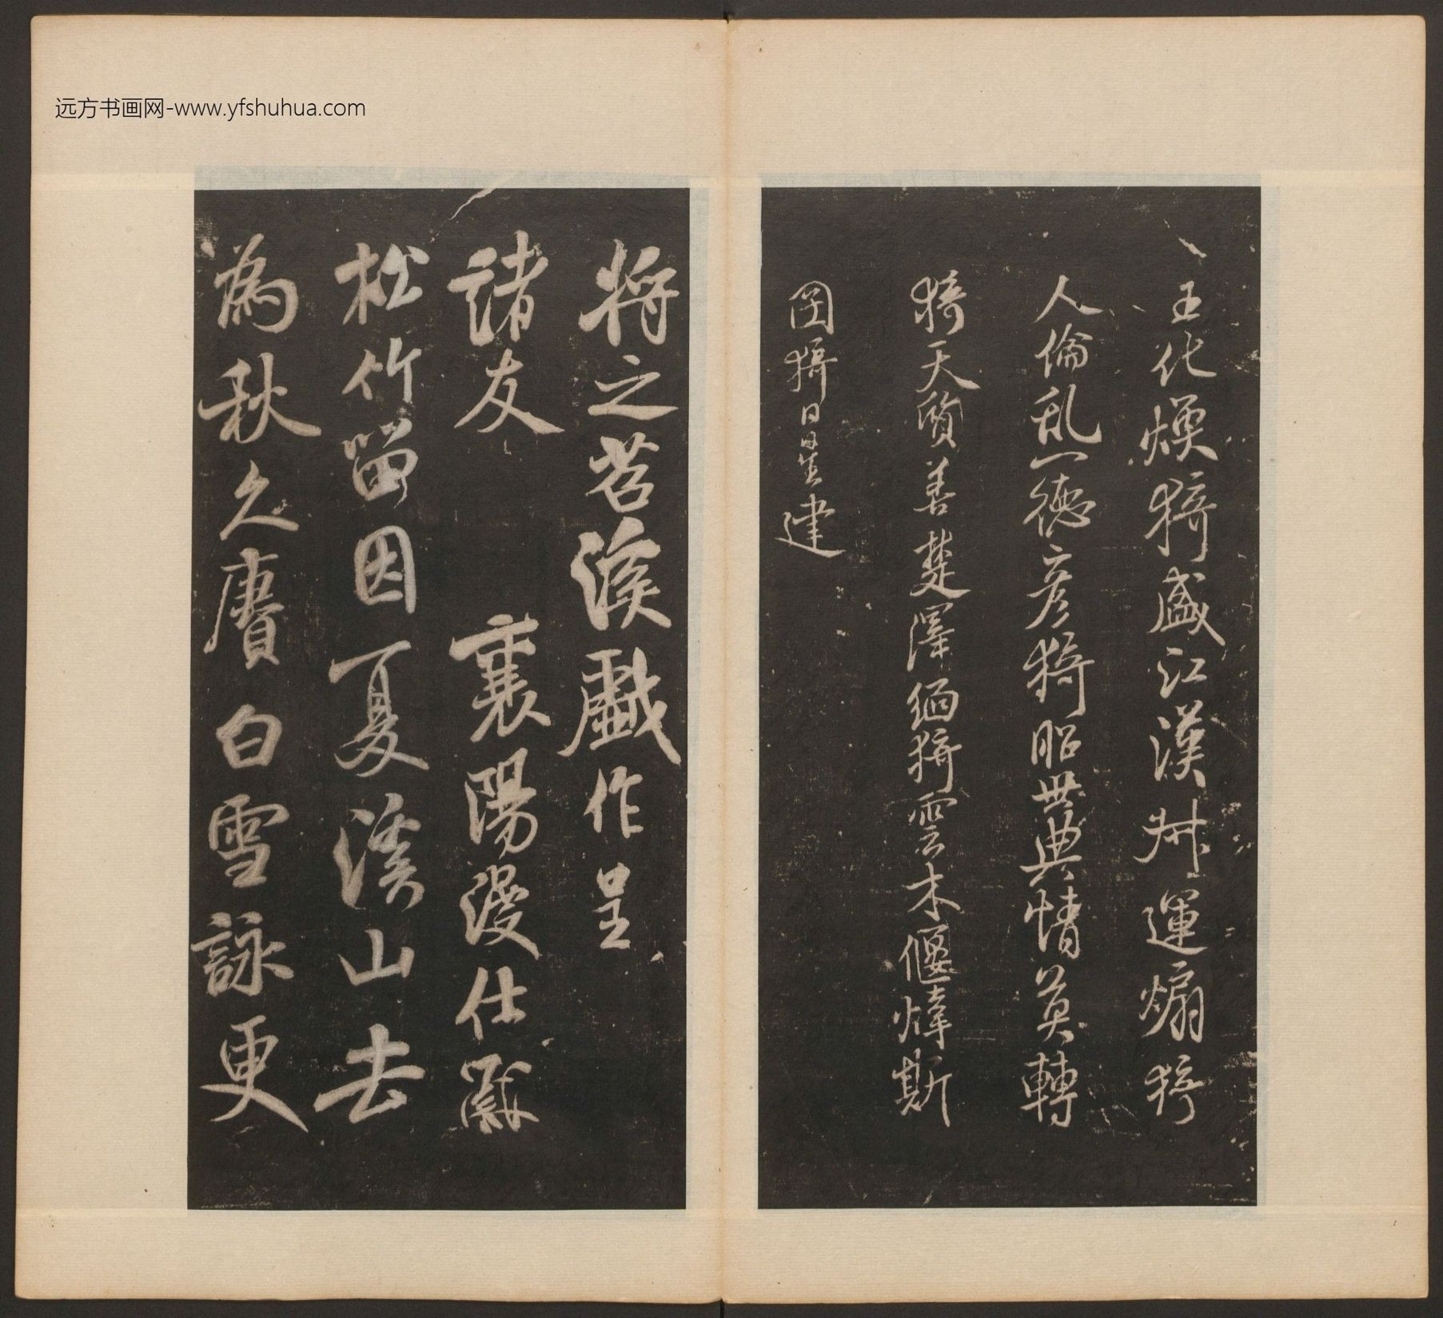 远方书画网-www.yfshuhua.com
王化煥猗盛江漢叔運煽猗
人倫乱一德彥猗昭世典情莫轉
猗天質善楚澤緬猗雲木偃煒斯
猗日星建
將之苕溪戲作呈
諸友 襄陽漫仕黻
松竹留因夏溪山去
為秋久賡白雪詠更